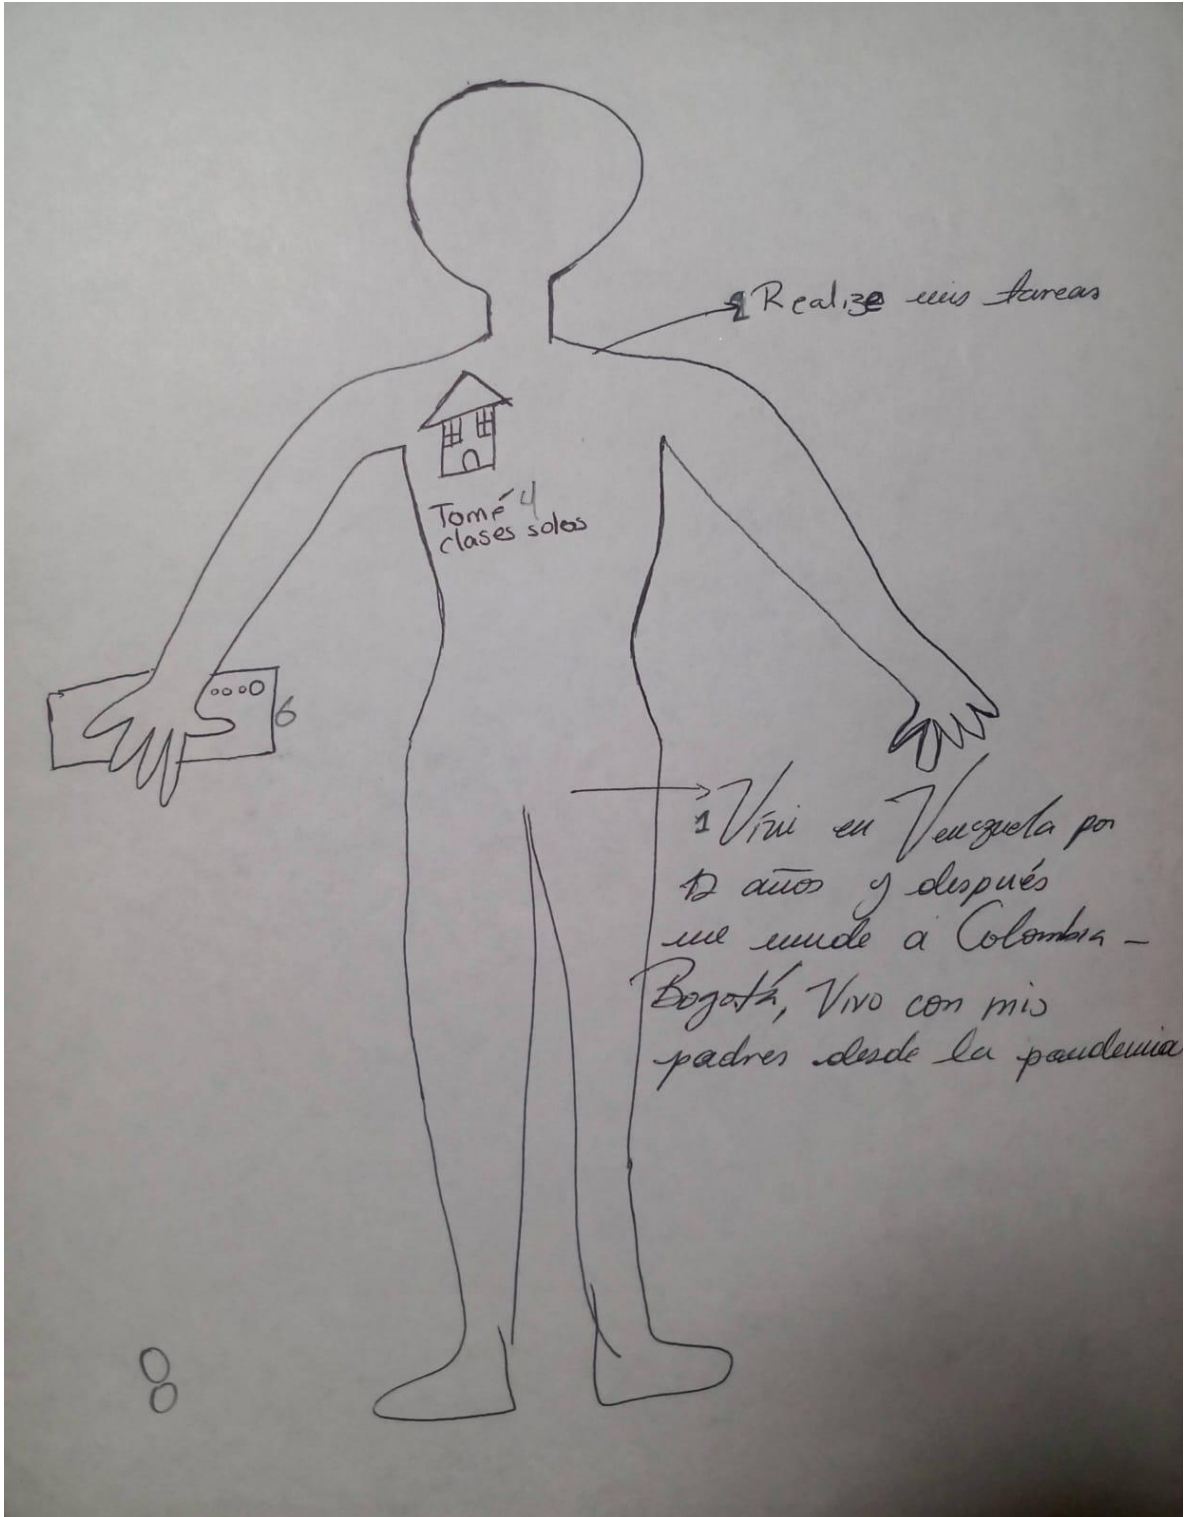 Realize mis tareas
Tomé 4
clases solos
6
1 Viví en Venezuela por
12 años y después
me mude a Colombia -
Bogotá, Vivo con mis
padres desde la pandemia
8